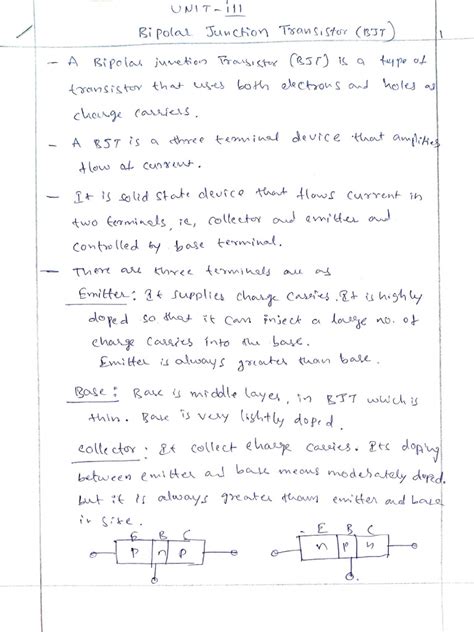 UNIT-III
Bipolar Junction Transistor (BJT)
1
- A Bipolar junction Transistor (BJT) is a type of
transistor that uses both electrons and holes as
charge carriers.
- A BJT is a three terminal device that amplifies
flow of current.
- It is solid state device that flows current in
two terminals, ie, collector and emitter and
controlled by base terminal.
- There are three terminals are as
Emitter: It supplies charge carries. It is highly
doped so that it can inject a large no. of
charge carries into the base.
Emitter is always greater than base.
Base: Base is middle layer, in BJT which is
thin. Base is very lightly doped.
Collector: It collect charge carries. Its doping
between emitter and base means moderately doped.
but it is always greater tham emitter and base
in size.
E B C
p n p
- E B C
n p n